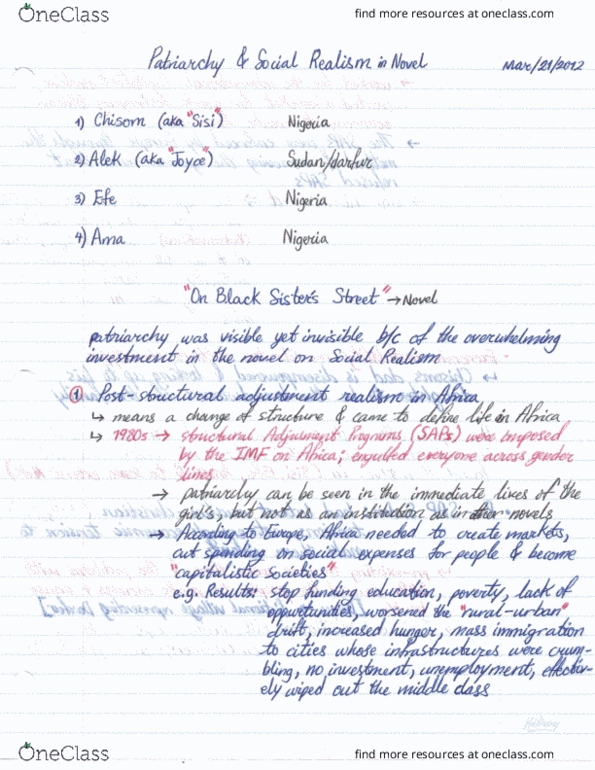 OneClass
find more resources at oneclass.com
Patriarchy & Social Realism in Novel
Mar/21/2012
1) Chisom (aka "Sisi") Nigeria
2) Alek (aka "Joyce") Sudan/darfur
3) Efe Nigeria
4) Ama Nigeria
"On Black Sister's Street" → Novel
patriarchy was visible yet invisible b/c of the overwhelming
investment in the novel on Social Realism
① Post-structural adjustment realism in Africa
↳ means a change of structure & came to define life in Africa
↳ 1980s → structural Adjusment Programs (SAPs) were imposed
by the IMF on Africa; engulfed everyone across gender
lines
→ patriarchy can be seen in the immediate lives of the
girl's, but not as an institution as in other novels
→ According to Europe, Africa needed to create markets,
cut spending on social expenses for people & become
"capitalistic societies"
e.g. Results: stop funding education, poverty, lack of
opportunities, worsened the "rural-urban"
drift, increased hunger, mass immigration
to cities whose infrastructures were crum-
bling, no investment, unemployment, effectiv-
ely wiped out the middle class
OneClass
find more resources at oneclass.com